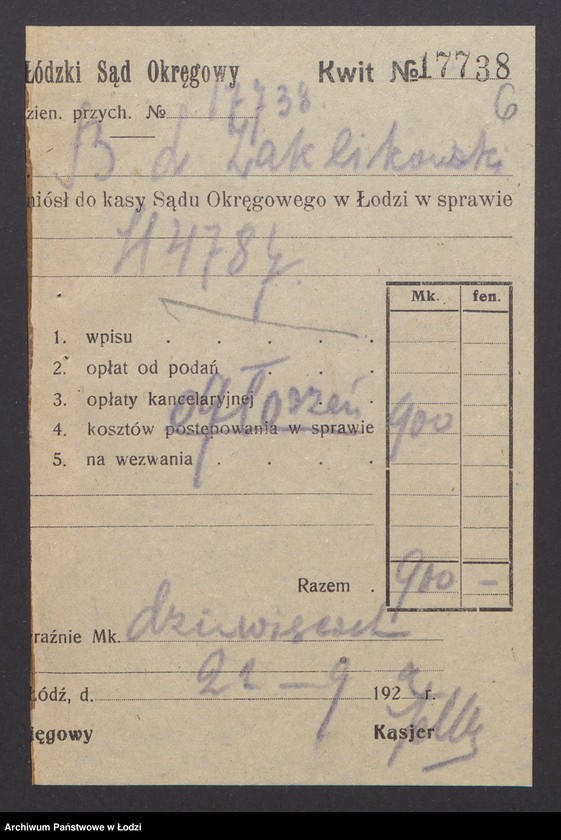 Łódzki Sąd Okręgowy Kwit № 17738
6
zien. przych. № 17738.
B d Zaklikowski
niósł do kasy Sądu Okręgowego w Łodzi w sprawie
H 4787
Mk. fen.
1. wpisu . . . . .
2. opłat od podań . . . .
3. opłaty kancelaryjnej . . .
ogłoszeń 900
4. kosztów postępowania w sprawie
5. na wezwania . . . .
Razem . 900 –
raźnie Mk. dziewięćset
Łódź, d. 21 – 9 192 r.
ęgowy Kasjer
Archiwum Państwowe w Łodzi